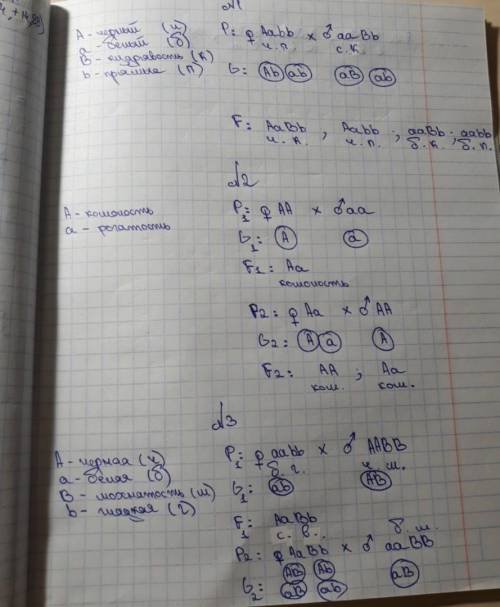 №1
А - черный (ч)
а - белый (б)
В - кудрявость (к)
b - прямые (п)
P: ♀ Aabb × ♂ aaBb
ч. п. с. к.
G: Ab ab aB ab
F: AaBb , Aabb ; aaBb ; aabb
ч. к. ч. п. б. к. б. п.
№2
А - комолость
а - рогатость
P1: ♀ AA × ♂ aa
G1: A a
F1: Aa
комолость
P2: ♀ Aa × ♂ AA
G2: A a A
F2: AA ; Aa
ком. ком.
№3
А - черная (ч)
а - белая (б)
В - мохнатость (ш)
b - гладкая (г)
P1: ♀ aabb × ♂ AABB
б. г. ч. ш.
G1: ab AB
F1: AaBb
с. в. б. ш.
P2: ♀ AaBb × ♂ aaBB
G2: AB Ab aB ab aB